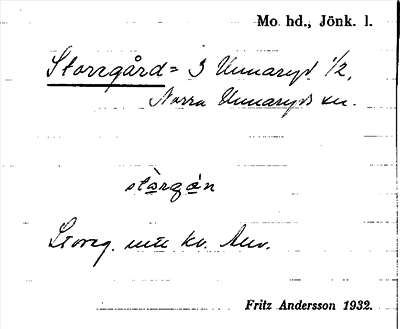 Mo hd., Jönk. l.
Storegård = 3 Unnaryd 1/2,
Norra Unnaryds sn.
stòrgán
Storeg. kv. Anv.
Fritz Andersson 1932.